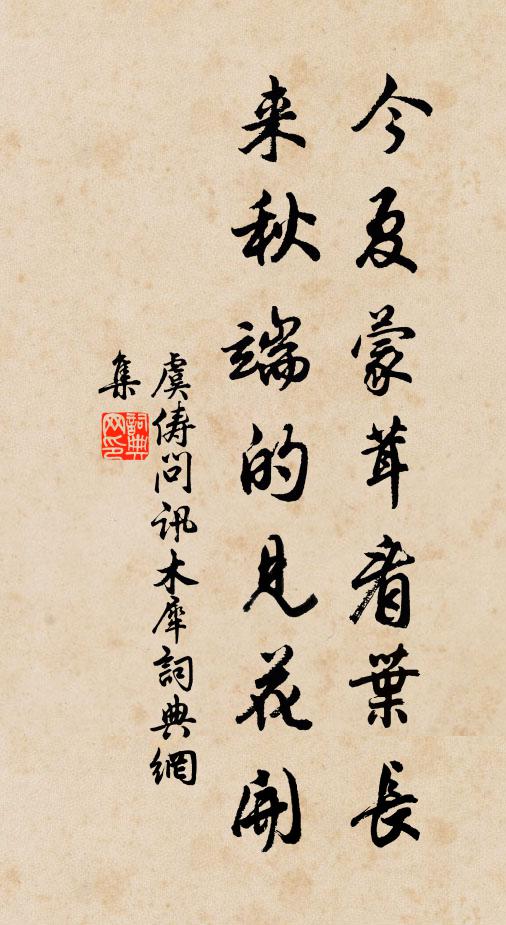 今夏蒙茸看葉長
来秋端的見花開
虞俦問訊木犀詞典網
集
詞典
网印